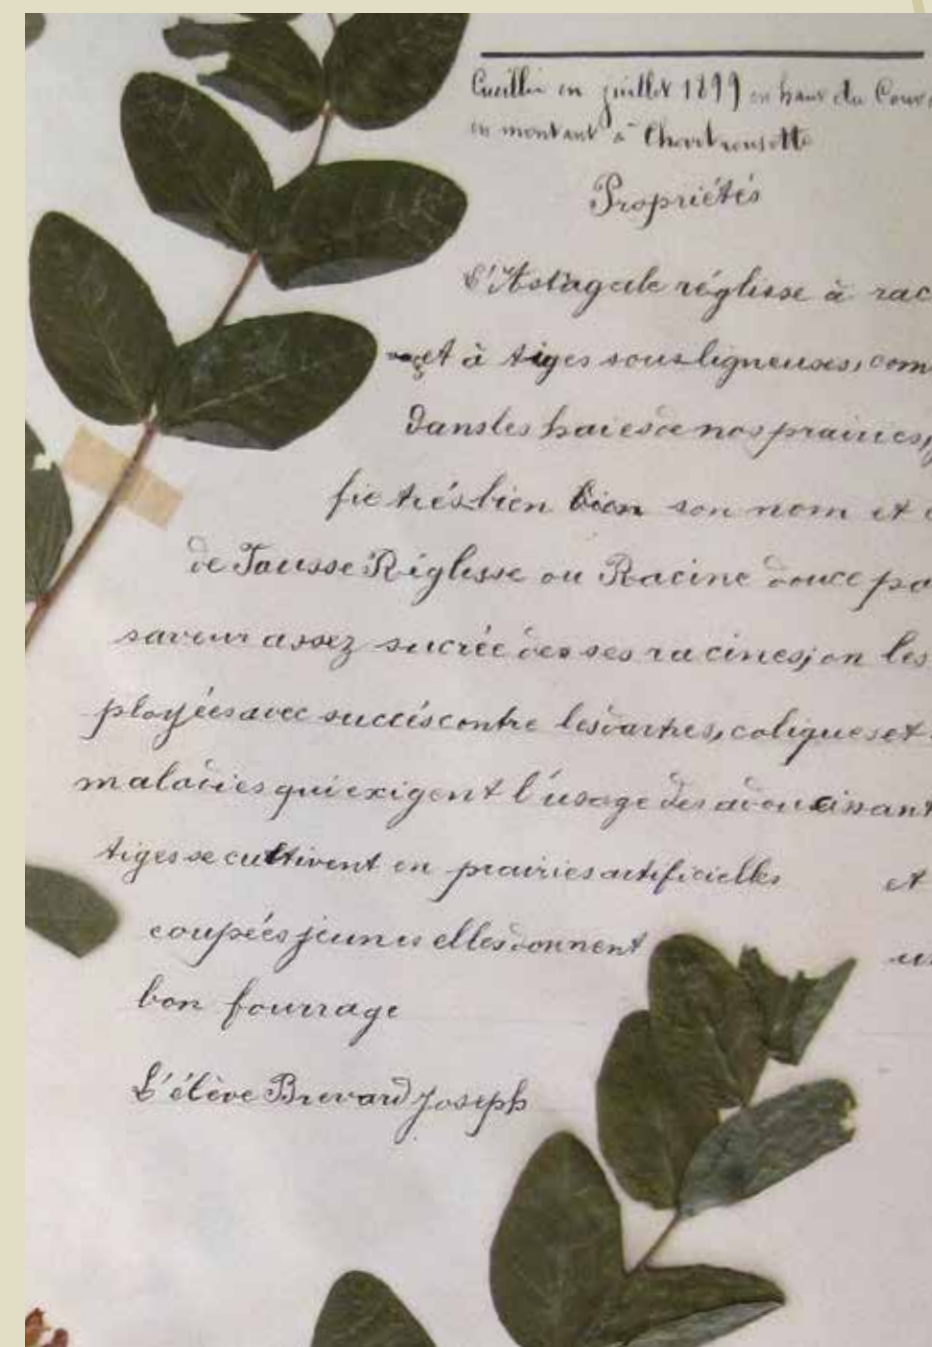 Cueilli en juillet 1899 en haut du Couv
en montant à Chartrousette
Propriétés
L'Astagale réglisse à rac
et à tiges sousligneuses, com
dans les haies de nos prairies,
fie très bien bien son nom et
de Fausse Réglisse ou Racine douce pa
saveur assez sucrée des ses racines; on les
ployées avec succès contre les dartres, coliques et
maladies qui exigent l'usage des adoucissant
tiges se cultivent en prairies artificielles et
coupées jeunes elles donnent un
bon fourrage
L'élève Brevard Joseph